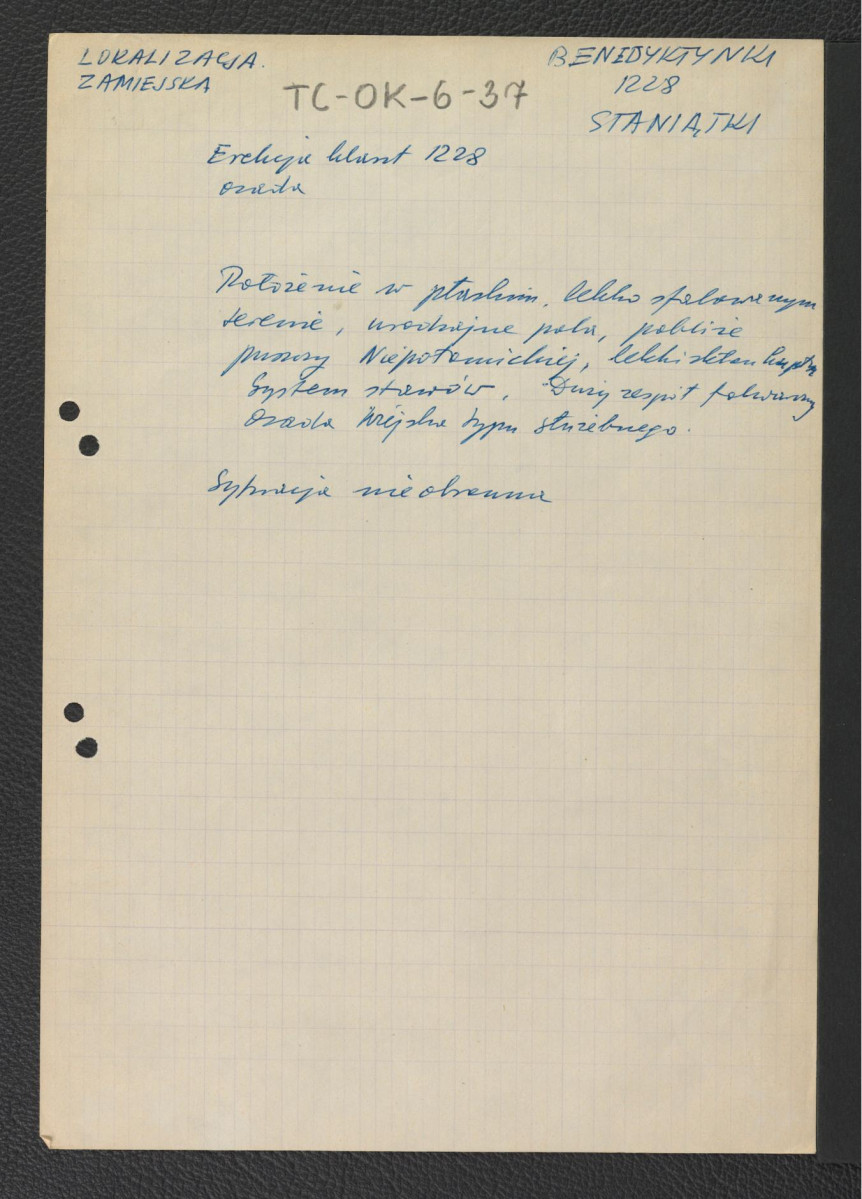 LOKALIZACJA.
ZAMIEJSKA
TC-OK-6-37
BENEDYKTYNKI
1228
STANIĄTKI
Erekcja klaszt 1228
osada
Położenie w płaskim, lekko sfalowanym
terenie, urodzajne pola, pobliże
puszczy Niepołomickiej, lekki skłon
System stawów, Duży zespół folwarczny
osada wiejska typu służebnego.
Sytuacja nieobronna